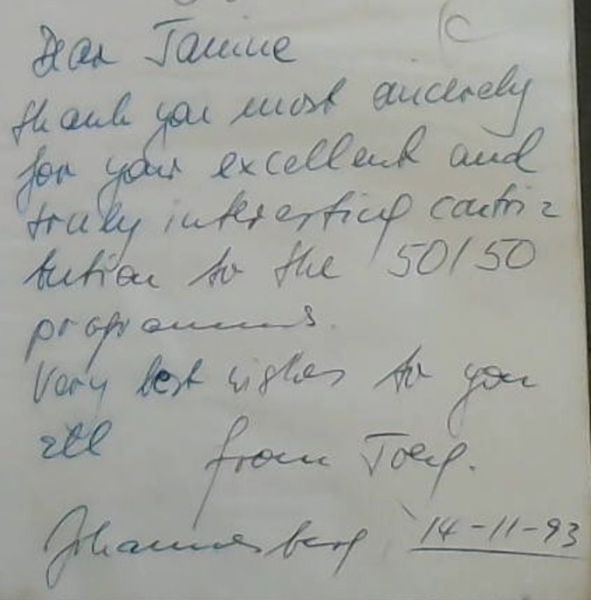 Dear Janine
thank you most sincerely
for your excellent and
truly interesting contri=
bution to the 50/50
programmes.
Very best wishes to you
all from Joerg.
Johannesburg 14-11-93